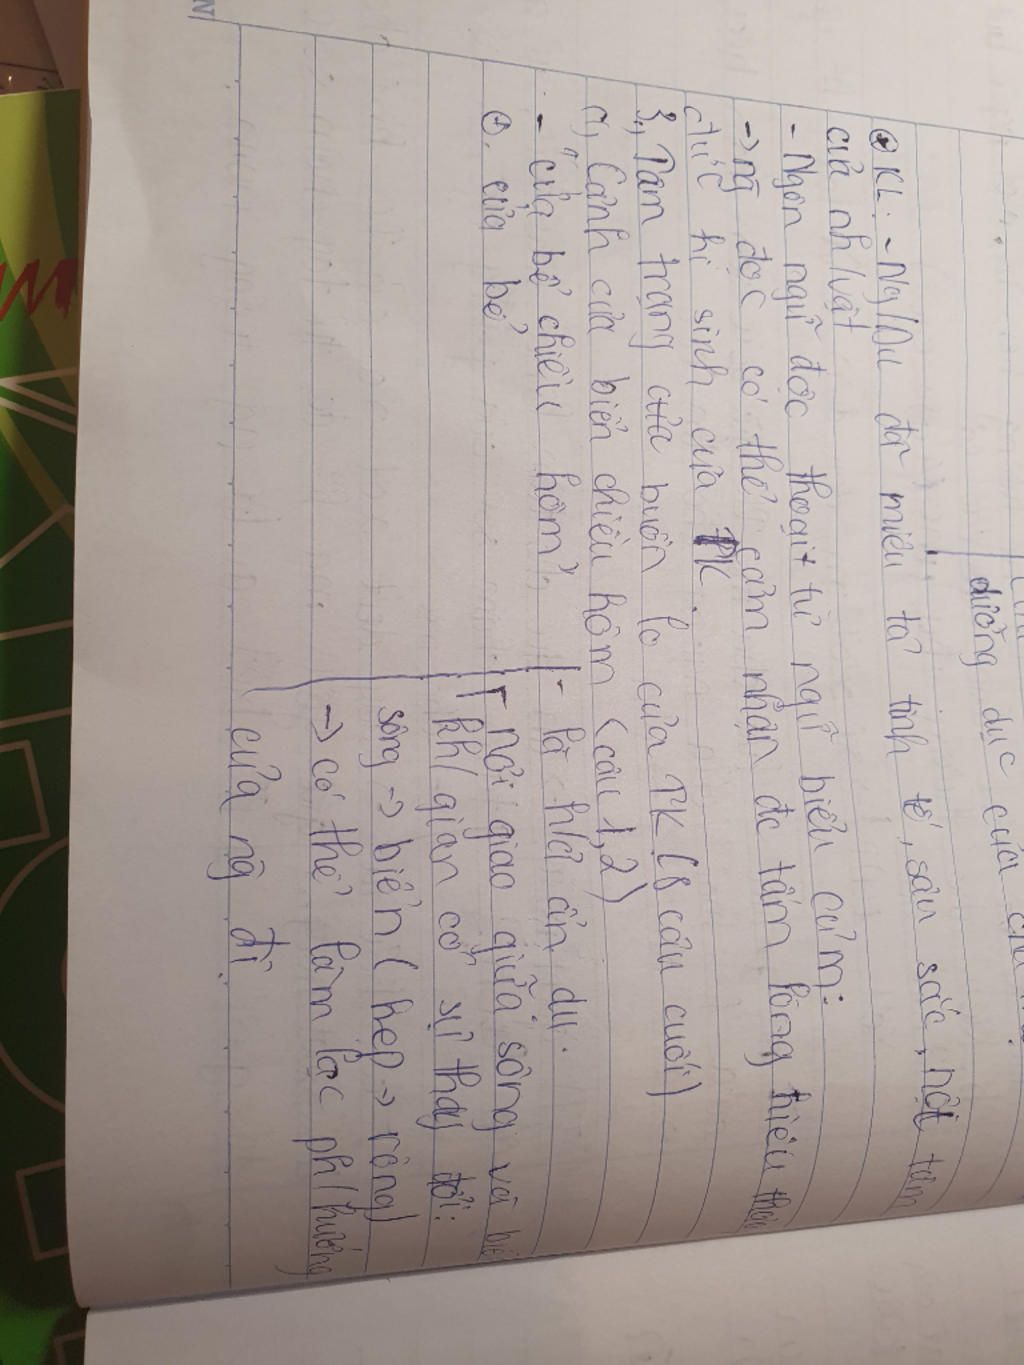 dưỡng dục của cha
⊕ KL: - Ng/Du đã miêu tả tinh tế, sâu sắc, nội tâm
của nh/vật
- Ngôn ngữ độc thoại + từ ngữ biểu cảm:
-> ng đọc có thể cảm nhận đc tấm lòng hiếu thảo
đức hi sinh của TK.
3, Tâm trạng của buồn lo của TK (8 câu cuối)
a, Cảnh cửa biển chiều hôm (câu 1,2)
- "cửa bể chiều hôm" - là h/ả ẩn dụ.
⊕. cửa bể - nơi giao giữa sông và biển
kh/gian có sự thay đổi:
sông -> biển (hẹp -> rộng)
-> có thể làm lạc ph/hướng
của ng đi